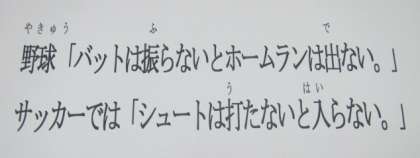 やきゅう ふ で
野球「バットは振らないとホームランは出ない。」
う はい
サッカーでは「シュートは打たないと入らない。」